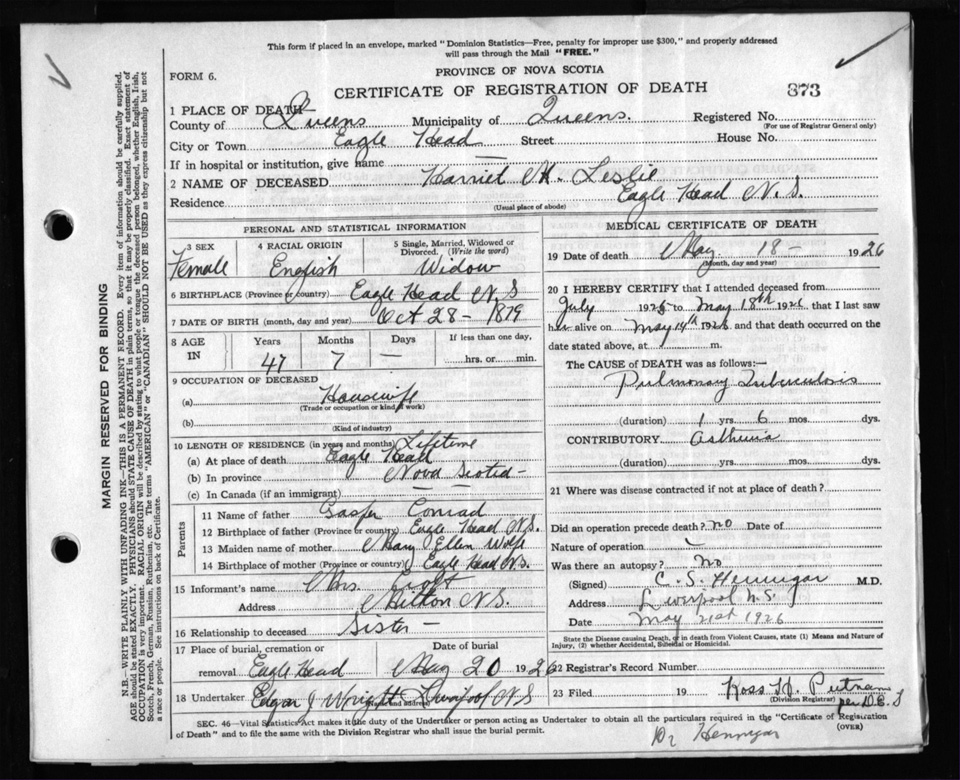 This form if placed in an envelope, marked "Dominion Statistics—Free, penalty for improper use $300," and properly addressed
will pass through the Mail "FREE."
FORM 6.
PROVINCE OF NOVA SCOTIA
CERTIFICATE OF REGISTRATION OF DEATH
873
1 PLACE OF DEATH
County of Queens Municipality of Queens. Registered No.
(For use of Registrar General only)
City or Town Eagle Head Street House No.
If in hospital or institution, give name —
2 NAME OF DECEASED Harriet M. Leslie
Residence Eagle Head N.S.
(Usual place of abode)
PERSONAL AND STATISTICAL INFORMATION
3 SEX 4 RACIAL ORIGIN 5 Single, Married, Widowed or Divorced. (Write the word)
Female English Widow
6 BIRTHPLACE (Province or country) Eagle Head N.S
7 DATE OF BIRTH (month, day and year) Oct 28 - 1879
8 AGE IN Years Months Days If less than one day,
47 7 — hrs. or min.
9 OCCUPATION OF DECEASED
(a) Housewife
(Trade or occupation or kind of work)
(b)
(Kind of industry)
10 LENGTH OF RESIDENCE (in years and months) Lifetime
(a) At place of death Eagle Head
(b) In province Nova Scotia -
(c) In Canada (if an immigrant) —
Parents
11 Name of father Casper Conrad
12 Birthplace of father (Province or country) Eagle Head N.S.
13 Maiden name of mother Mary Ellen Wolfe
14 Birthplace of mother (Province or country) Eagle Head N.S.
15 Informant's name Mrs. Croft
Address Milton N.S.
16 Relationship to deceased Sister -
17 Place of burial, cremation or removal Eagle Head Date of burial May 20 1926
18 Undertaker Edgar J Wright Liverpool N S
(Name and address)
MEDICAL CERTIFICATE OF DEATH
19 Date of death May 18 - 1926
(Month, day and year)
20 I HEREBY CERTIFY that I attended deceased from
July 1925 to May 18th 1926 that I last saw
her alive on May 14th 1926 and that death occurred on the
date stated above, at m.
The CAUSE OF DEATH was as follows:—
Pulmonary Tuberculosis
(duration) 1 yrs. 6 mos. dys.
CONTRIBUTORY
(duration) yrs. mos. dys.
21 Where was disease contracted if not at place of death?
Did an operation precede death? no Date of
Nature of operation —
Was there an autopsy? no
(Signed) C. S. Hennigar M.D.
Address Liverpool N.S.
Date May 21st 1926
State the Disease causing Death, or in death from Violent Causes, state (1) Means and Nature of
Injury, (2) whether Accidental, Suicidal or Homicidal.
22 Registrar's Record Number
23 Filed 19 Ross H. Putnam
(Division Registrar) per D.C.S
SEC. 46—Vital Statistics Act makes it the duty of the Undertaker or person acting as Undertaker to obtain all the particulars required in the "Certificate of Registration
of Death" and to file the same with the Division Registrar who shall issue the burial permit.
(OVER)
Dr Hennigar
MARGIN RESERVED FOR BINDING
N.B.—WRITE PLAINLY WITH UNFADING INK—THIS IS A PERMANENT RECORD. Every item of information should be carefully supplied.
AGE should be stated EXACTLY. PHYSICIANS should STATE CAUSE OF DEATH in plain terms, so that it may be properly classified. Exact statement of
OCCUPATION is very important. RACIAL ORIGIN will be described by stating to what people or tongue the deceased person belonged, whether English, Irish,
Scotch, French, German, Russian, Ruthenian, etc. The terms "AMERICAN" or "CANADIAN" SHOULD NOT BE USED as they express citizenship but not
a race or people. See instructions on back of Certificate.